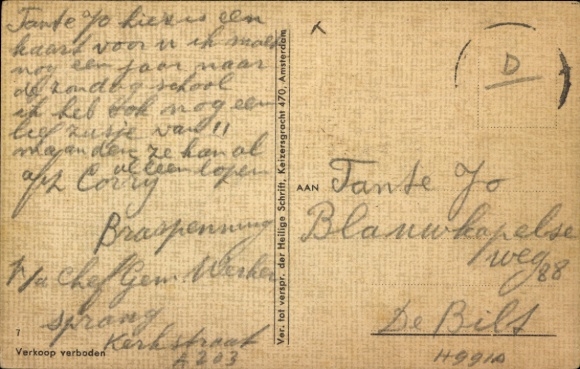 Tante Jo hier is een
kaart voor u ik moet
nog een jaar naar
de zondag school
ik heb ook nog een
lief zusje van 11
maanden ze kan al
alleen lopen
afz Corry
Braspenning
p/a Chef Gem. Werken
Sprang
Kerkstraat
A 203
7
Verkoop verboden
Ver. tot verspr. der Heilige Schrift, Keizersgracht 470, Amsterdam
D
AAN Tante Jo
Blauwkapelse
weg 88
De Bilt
H991A